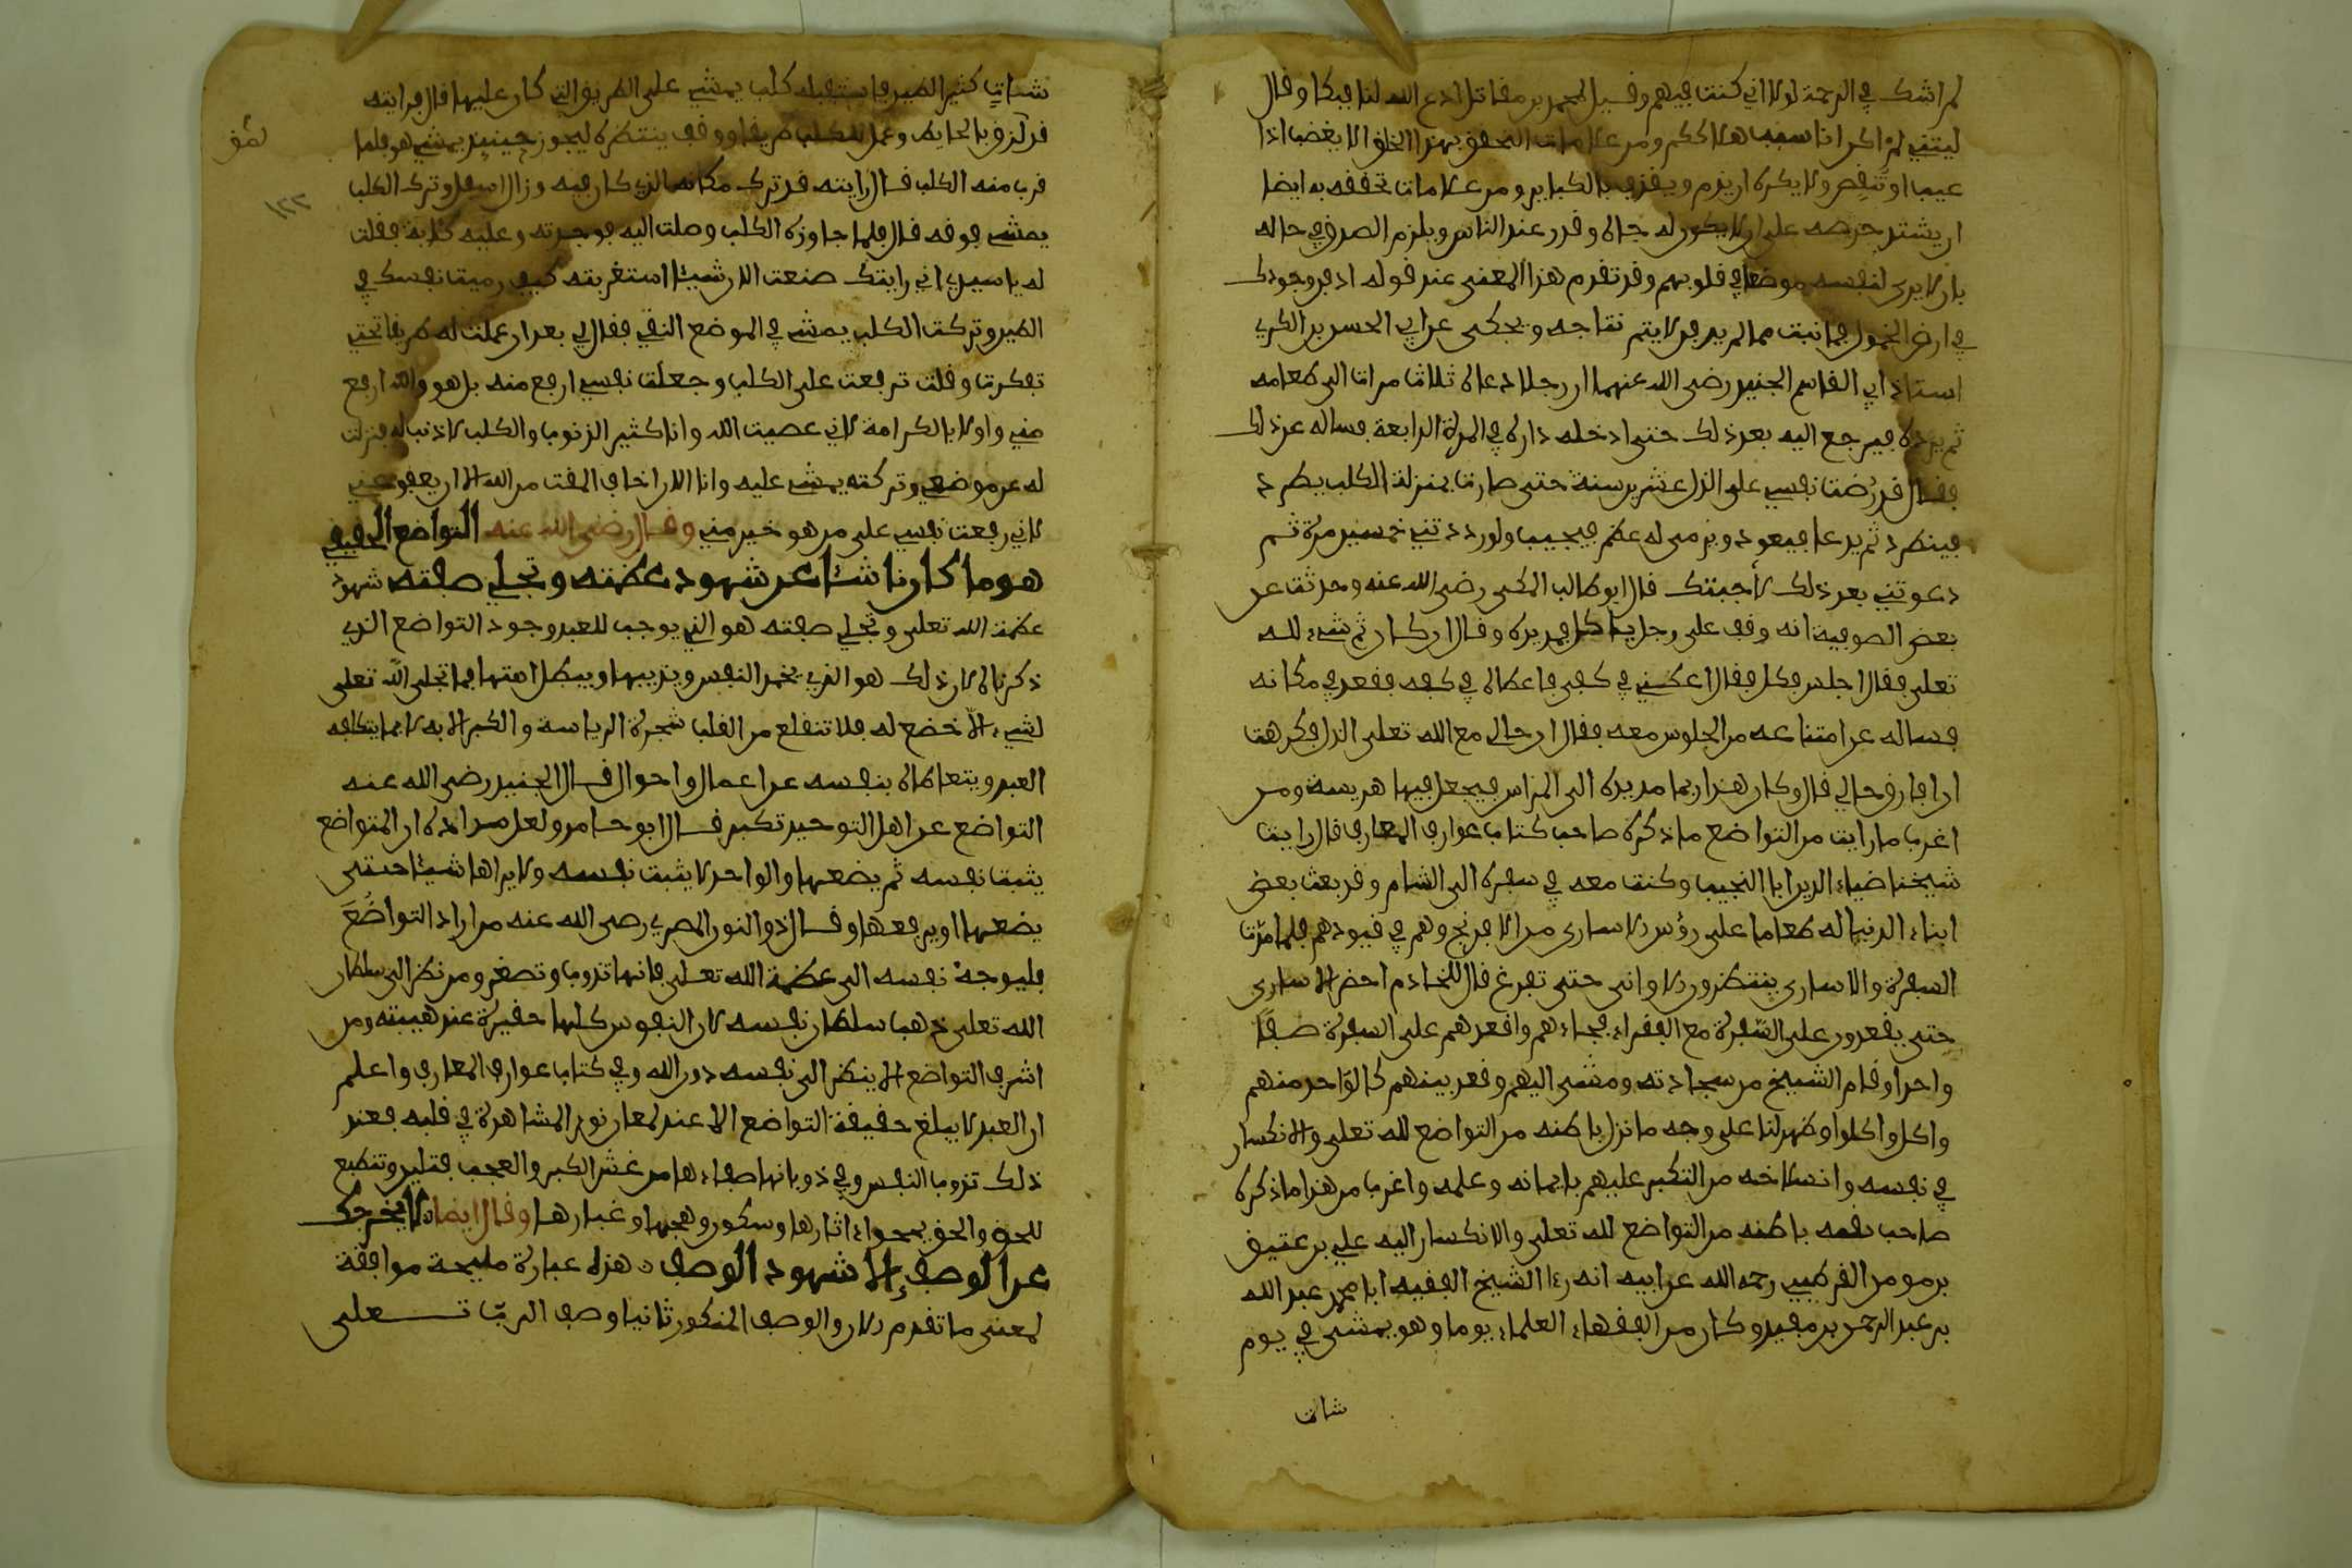 لم اشك في الرحمة لولا اني كنت فيهم وقيل لمحمد بن مقاتل ادع الله لنا فبكا وقال
ليتني لم اكن انا سبب هلاككم ومن علامات التحقق بهذا الخلق الا يغضب اذا
عيب او تنقص ولا يكره ان يذم ويقذف بالكباير ومن علامات تحققه به ايضا
ان يشتد حرصه على ان لا يكون له جاه وقدر عند الناس ويلزم الصدق في حاله
بان لا يرى لنفسه موضعا في قلوبهم وقد تقدم هذا المعنى عند قوله ادفن وجودك
في ارض الخمول فما نبت مما لم يدفن لا يتم نتاجه ويحكى عن ابي الحسن بن الكريي
استاذ ابي القاسم الجنيد رضى الله عنهما ان رجلا دعاه ثلاث مرات الى طعامه
ثم يرده فيرجع اليه بعد ذلك حتى ادخله داره في المرة الرابعة فساله عن ذلك
فقال قد رُضت نفسي على الذل عشرين سنة حتى صارت بمنزلة الكلب يطرد
فينطرد ثم يدعا فيعود ويرمى له عظم فيجيب ولو رددتني خمسين مرة ثم
دعوتني بعد ذلك لأجبتك قال ابو طالب المكى رضى الله عنه وحدثت عن
بعض الصوفية انه وقف على رجل ياكل فمد يده وقال ان كان ثم شيء لله
تعلى فقال اجلس فكل فقال اعطني في كفي فاعطاه في كفه فقعد في مكانه
فساله عن امتناعه من الجلوس معه فقال ان حالي مع الله تعلى الذل فكرهت
ان افارق حالي قال وكان هذا ربما مد يده الى الهراس فيجعل فيها هريسة ومن
اغرب ما رايت من التواضع ما ذكره صاحب كتاب عوارف المعارف قال رايت
شيخنا ضياء الدين ابا النجيب وكنت معه في سفره الى الشام وقد بعث بعض
ابناء الدنيا له طعاما على رؤس الاسارى من الافرنج وهم في قيودهم فلما مُدّت
السفرة والاسارى ينتظرون الاوانى حتى تفرغ قال للخادم احضر الاسارى
حتى يقعدون على السّفرة مع الفقراء فجاء بهم واقعدهم على السفرة صفًا
واحدا وقام الشيخ من سجادته ومشى اليهم وقعد بينهم كالواحد منهم
واكل واكلوا وظهر لنا على وجهه ما نزل باطنه من التواضع لله تعلى والانكسار
في نفسه وانسلاخه من التكبر عليهم بايمانه وعلمه واغرب من هذا ما ذكره
صاحب باطنه من التواضع لله تعلى والانكسار اليه علي بن عتيق
بن مومن القرطبي رحمه الله عن ابيه انه رءا الشيخ الفقيه ابا محمد عبد الله
بن عبد الرحمن بن مفيد وكان من الفقهاء العلماء يوما وهو يمشى في يوم
شات
شاتٍ كثير الطين فاستقبله كلب يمشي على الطريق التي كان عليها قال فرايته
قد لزق بالحايط وعمل للكلب طريقا ووقف ينتظره ليجوز حينيذ يمشي هو فلما
قرب منه الكلب قال رايته قد ترك مكانه الذي كان فيه ونزل اسفل وترك الكلب
يمشي فوقه قال فلما جاوزه الكلب وصلت اليه فوجدته وعليه كئابة فقلت
له يا سيدي اني رايتك صنعت الان شيئا استغربته كيف رميت نفسك في
الطين وتركت الكلب يمشي في الموضع النقي فقال لي بعد ان عملت له طريقا تحتي
تفكرت وقلت ترفعت على الكلب وجعلت نفسي ارفع منه بل هو والله ارفع
مني واولا بالكرامة لاني عصيت الله وانا كثير الذنوب والكلب لا ذنب له فنزلت
له عن موضعي وتركته يمشي عليه وانا الان اخاف المقت من الله الا ان يعفو عني
لاني رفعت نفسي على من هو خير مني وقال رضى الله عنه التواضع الحقيقي
هو ما كان ناشئا عن شهود عظمته وتجلي صفته شهود
عظمة الله تعلى وتجلي صفته هو الذي يوجب للعبد وجود التواضع الذي
ذكرناه لان ذلك هو الذي يخمد النفس ويذيبها ويبطل امنتها فما تجلى الله تعلى
لشيء الا خضع له فلا تنقلع من القلب شجرة الرياسة والكبر الا به لا بما يتكلفه
العبد ويتعاطاه بنفسه من اعمال واحوال قال الجنيد رضى الله عنه
التواضع عند اهل التوحيد تكبر قال ابو حامد ولعل مراده ان المتواضع
يثبت نفسه ثم يضعها والواحد لا يثبت نفسه ولا يراها شيئا حتى
يضعها او يرفعها وقال ذو النون المصري رضى الله عنه من اراد التواضُعَ
فليوجه نفسه الى عظمة الله تعلى فانها تذوب وتصغر ومن نظر الى سلطان
الله تعلى ذهب سلطان نفسه لان النفوس كلها حقيرة عند هيبته ومن
اشرف التواضع الا ينظر الى نفسه دون الله وفي كتاب عوارف المعارف واعلم
ان العبد لا يبلغ حقيقة التواضع الا عند لمعان نور المشاهدة في قلبه فعند
ذلك تذوب النفس وفي ذوبانها صفاءها من غش الكبر والعجب فتلين وتنطبع
للحق والحق يمحو ءاثارها وسكون وهجها وغبارها وقال ايضا لا يخرجك
عن الوصف إلا شهود الوصف هذه عبارة مليحة موافقة
لمعنى ما تقدم الان والوصف المذكور ثانيا وصف الربّ تعلى
١٢٢